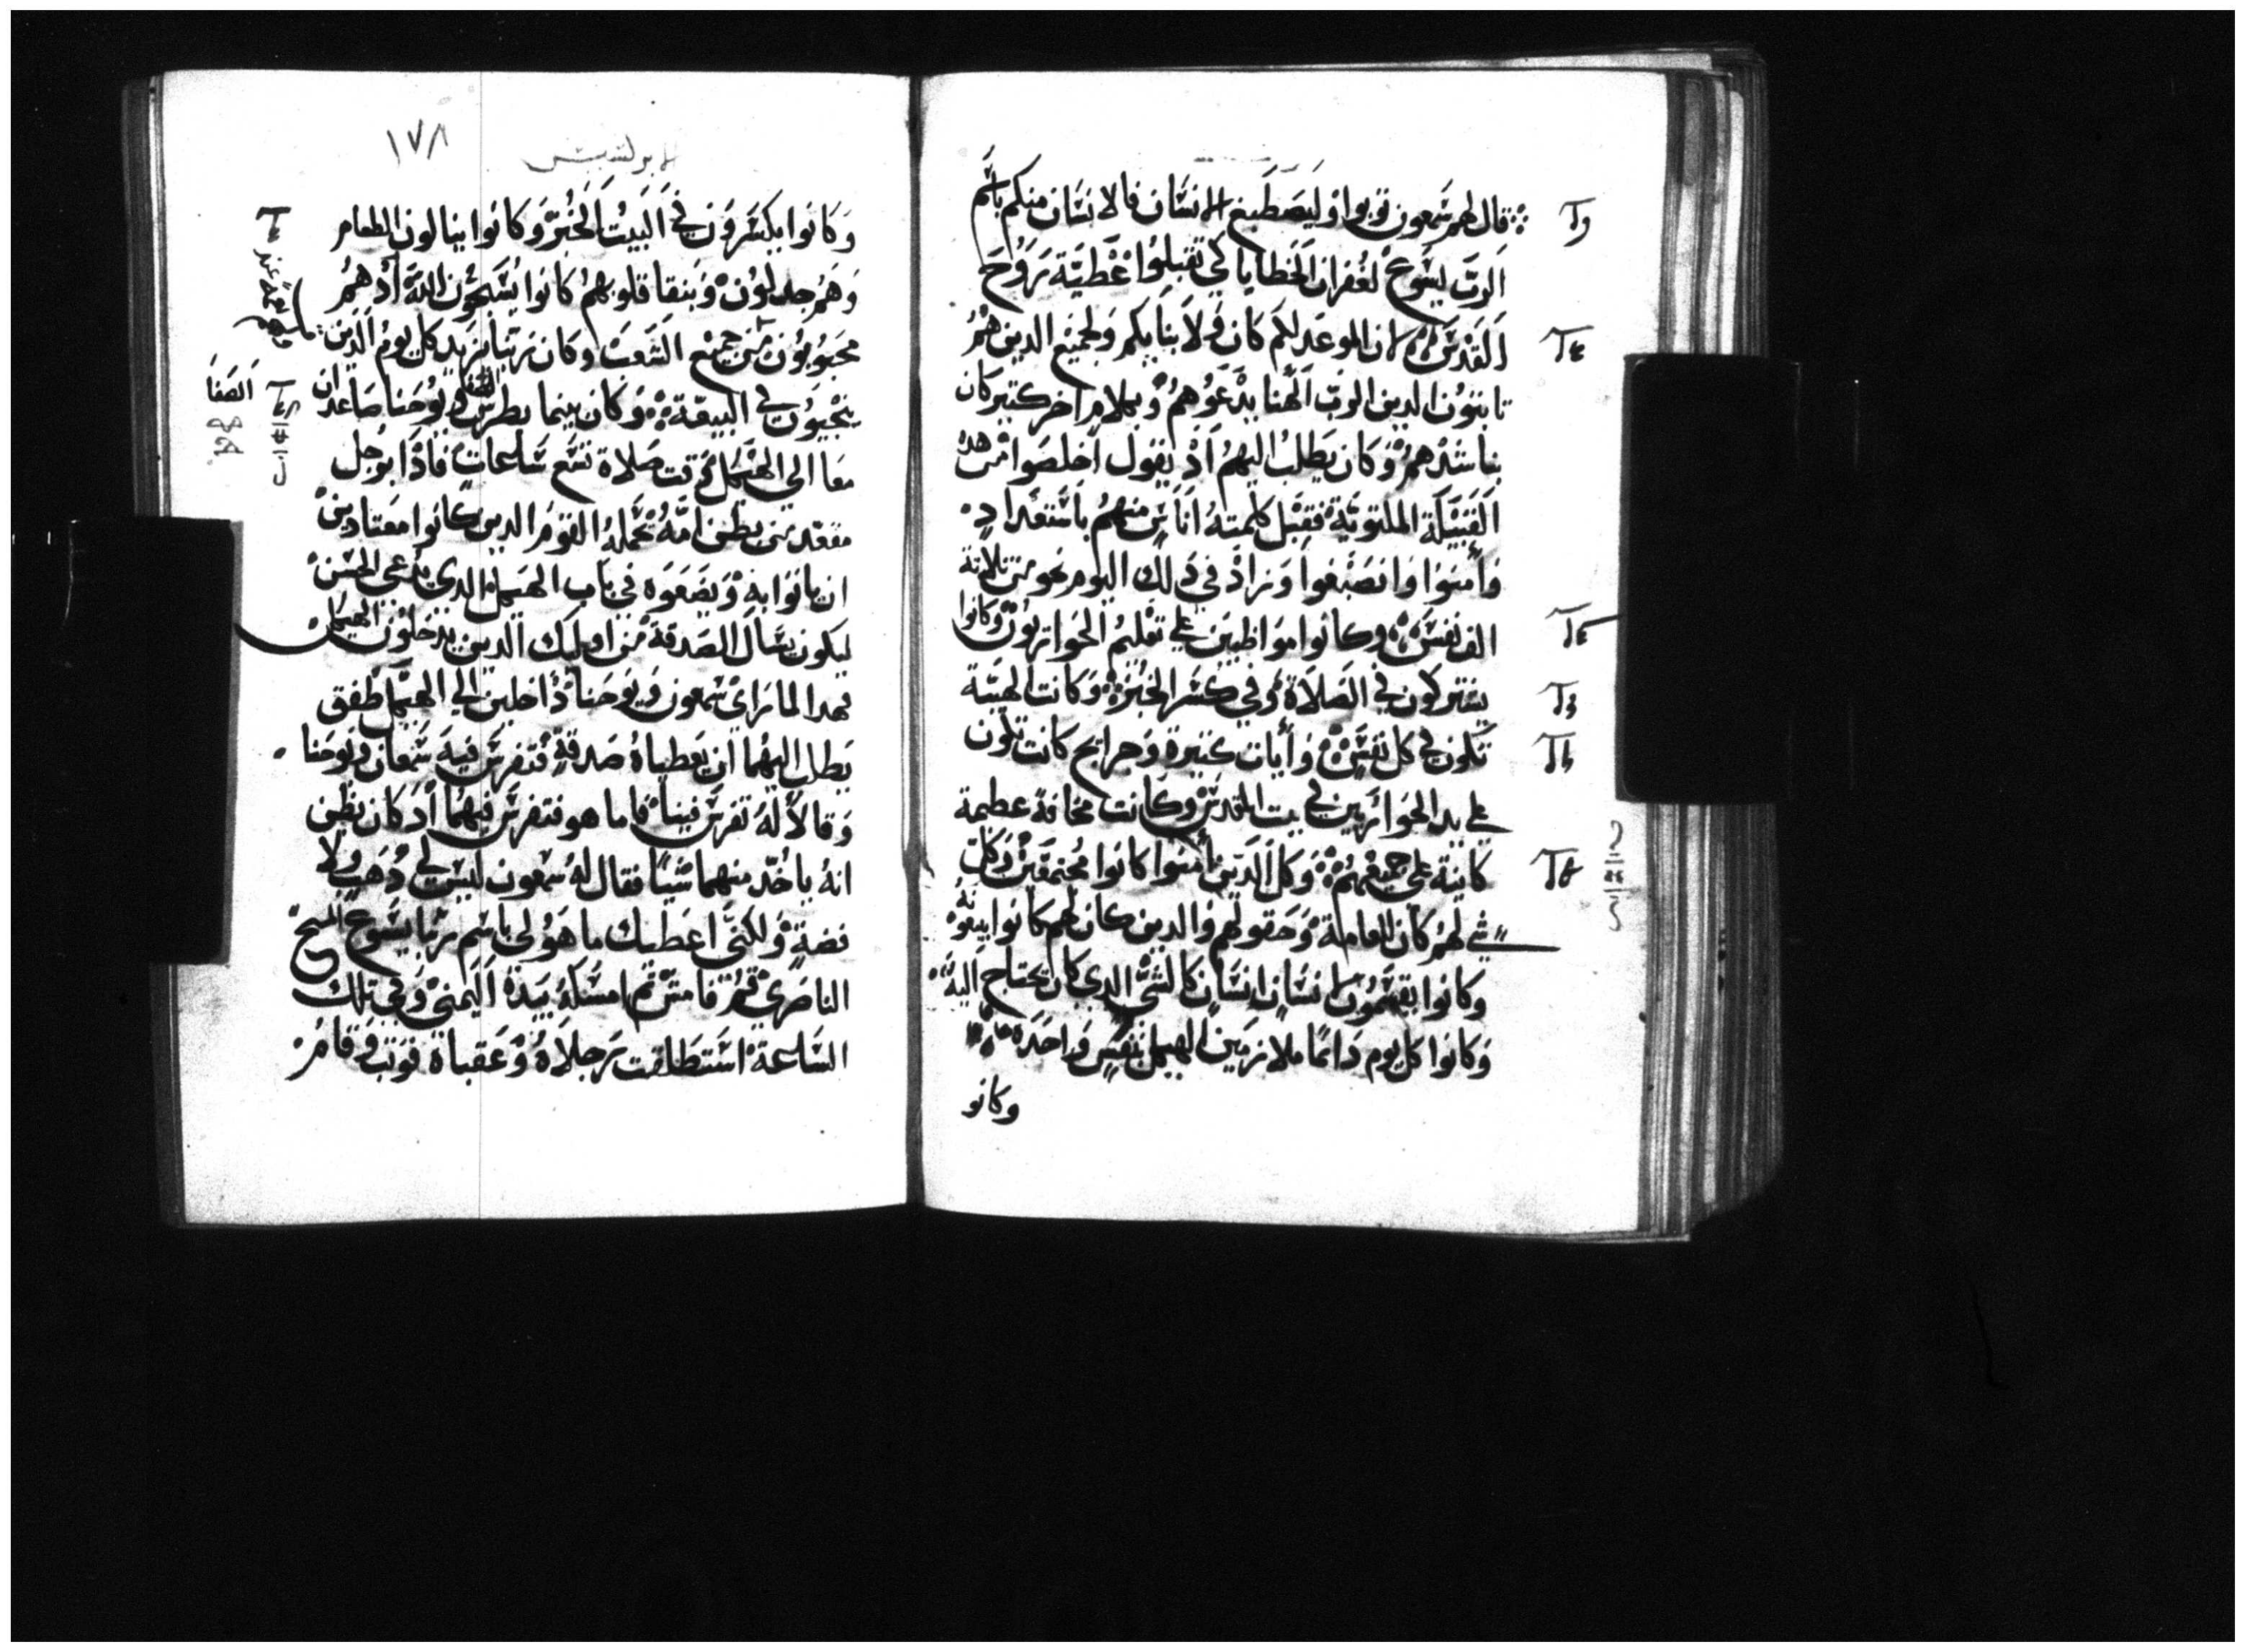 قال لهم شمعون توبوا وليصطبغ الانسان فالانسان منكم باسم
الرب يسوع لغفران الخطايا كي تقبلوا عطية روح
القدس لان الموعد لكم كان ولابنايكم ولجميع الدين هم
نايون الدين الرب الهنا يدعوهم وبكلام اخر كتير كان
يناشدهم وكان يطلب اليهم اد يقول اخلصوا من هده
القبيلة الملتوية فقبل كلمته اناس منهم باستعداد
وامنوا وانصبغوا وزاد في دلك اليوم نحو من تلاتة
الف نفس وكانوا مواظبين على تعليم الحواريون وكانوا
يشتركون في الصلاة وفي كسر الخبز وكانت الهيبة
تكون في كل نفس وايات كتيرة وجرايح كانت تكون
على يد الحواريين في بيت المقدس وكانت مخافة عظيمة
كاينة على جميعهم وكل الدين امنوا كانوا مجتمعين وكل
شي لهم كان للعامة وحقولهم والدين كان لهم كانوا يبيعونه
وكانوا يقسمون لانسان انسان كالشي الدي كان يحتاج اليه
وكانوا كل يوم دايما ملازمين الهيكل بنفس واحدة
وكانو
١٧٨
الابركسيس
وكانوا يكسرون في البيت الخبز وكانوا ينالون الطعام
وهم جدلون وبنقا قلوبهم كانوا يسبحون الله اد هم
محبوبون من جميع الشعب وكان ربنا يزيد كل يوم الدين
ينجيون في البيعة وكان بينما بطرس ويوحنا صاعدان
معا الى الهيكل وقت صلاة تسع ساعات فادا برجل
مقعد من بطن امه تحمله القوم الدين كانوا معتادين
ان ياتوا به ويضعوه في باب الهيكل الدي يدعى الحسن
ليكون يسال الصدقة من اوليك الدين يدخلون الهيكل
فهدا لما راى شمعون ويوحنا داخلين الى الهيكل طفق
يطلب اليهما ان يعطياه صدقة فتفرس فيه شمعان ويوحنا
وقالا له تفرس فينا فاما هو فتفرس فيهما اد كان يظن
انه ياخد منهما شيا فقال له شمعون ليس لي دهب ولا
فضة ولكني اعطيك ما هو لي باسم ربنا يسوع المسيح
الناصري قم فامش ثم امسكه بيده اليمنى وفي تلك
الساعة استطلقت رجلاه وعقباه فوتب وقام
الصفا